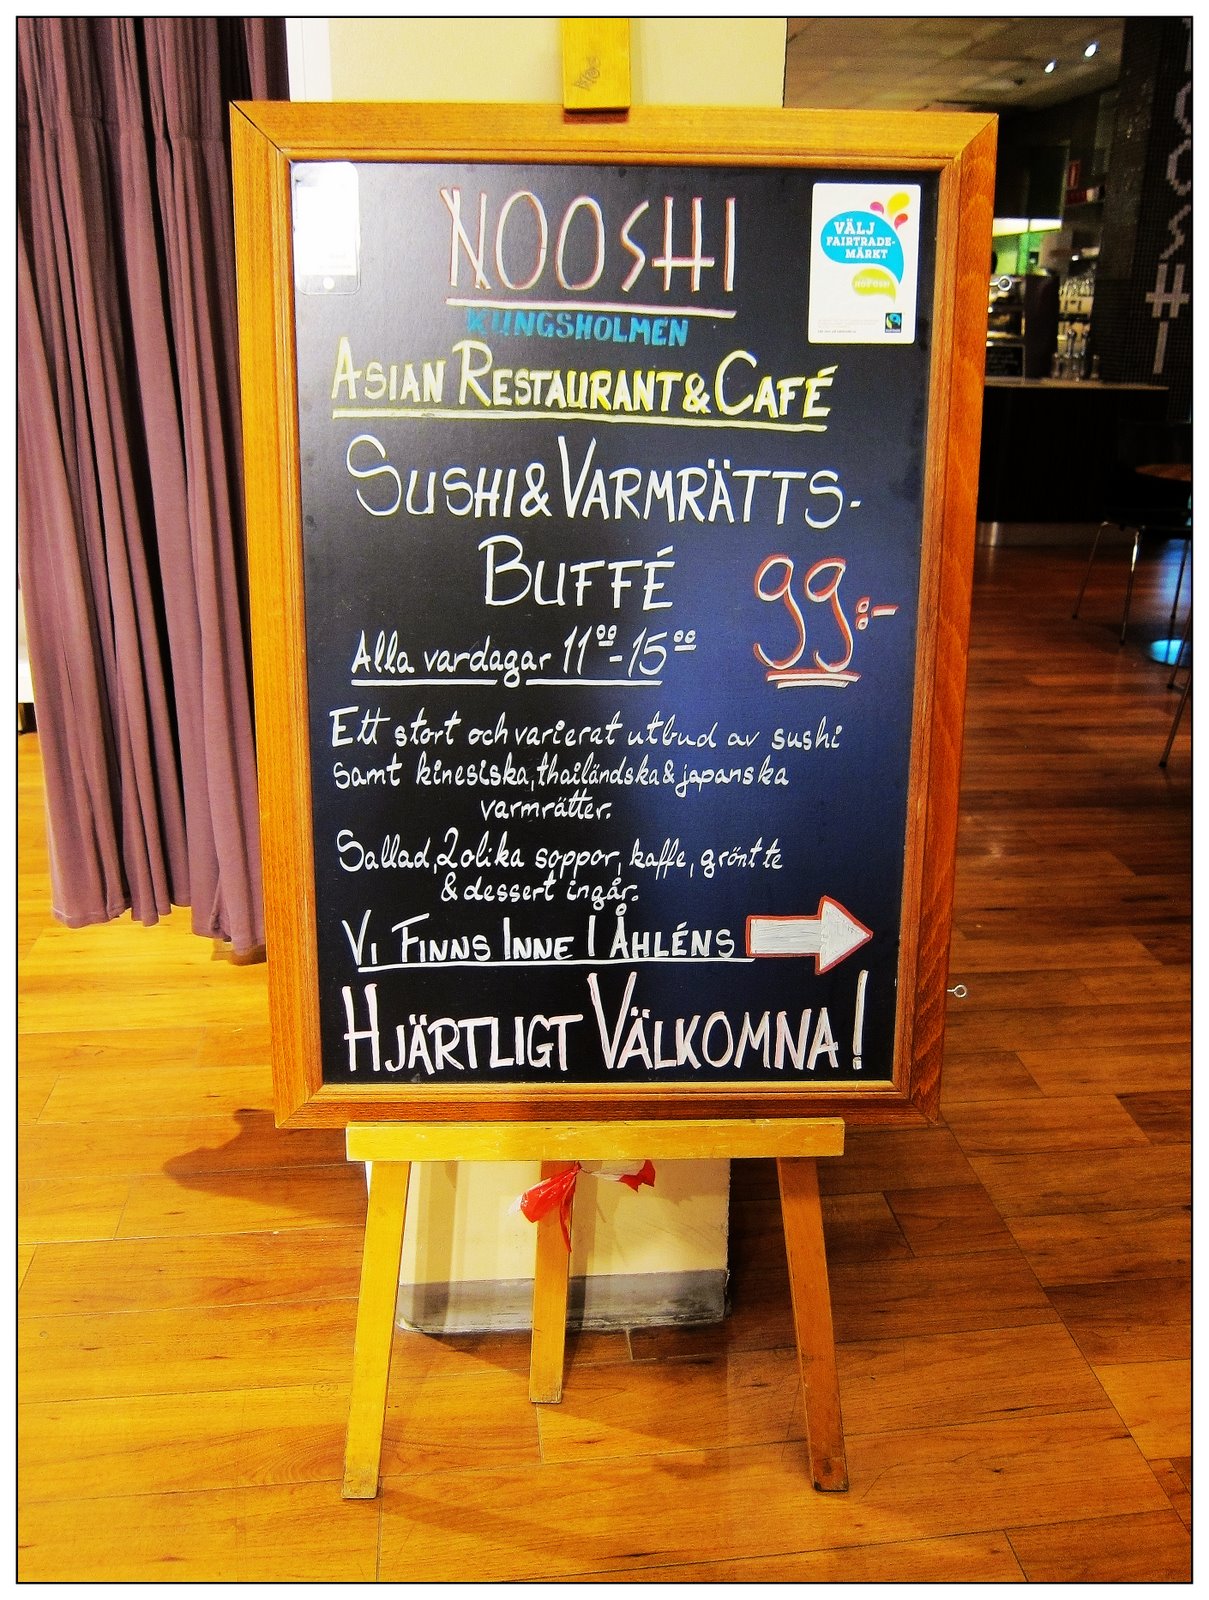 NOOSHI
KUNGSHOLMEN
ASIAN RESTAURANT & CAFÉ
SUSHI & VARMRÄTTS-
BUFFÉ
99:-
Alla vardagar 11⁰⁰-15⁰⁰
Ett stort och varierat utbud av sushi
samt kinesiska, thailändska & japanska
varmrätter.
Sallad, 2 olika soppor, kaffe, grönt te
& dessert ingår.
VI FINNS INNE I ÅHLÉNS
HJÄRTLIGT VÄLKOMNA!
VÄLJ
FAIRTRADE-
MÄRKT
HOS OSS!
OOSHI